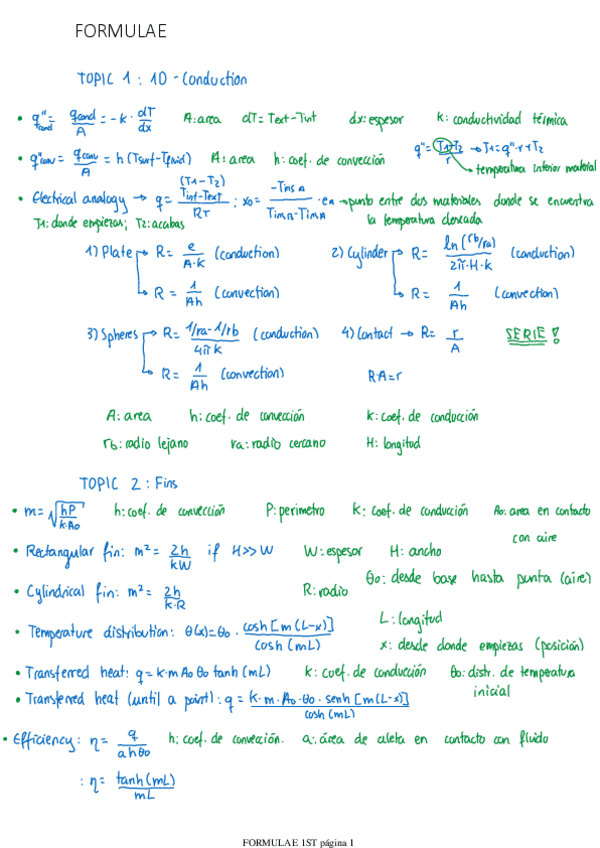 FORMULAE
TOPIC 1 : 1D - Conduction
• q"cond = qcond/A = -k · dT/dx   A: area   dT = Text - Tint   dx: espesor   k: conductividad térmica
• q"conv = qconv/A = h (Tsurf - Tfluid)   A: area   h: coef. de convección   q" = (T1 - T2)/r → T1 = q"·r + T2
temperatura interior material
• Electrical analogy → q = (T1 - T2) (Tint - Text)/RT ; x0 = -TmsA/(TimA - TimA) · eA → punto entre dos materiales donde se encuentra
T1: donde empiezas; T2: acabas   la temperatura deseada
1) Plate → R = e/(A·k) (conduction)   2) Cylinder → R = ln(rb/ra)/(2π·H·k) (conduction)
→ R = 1/(Ah) (convection)   → R = 1/(Ah) (convection)
3) Spheres → R = (1/ra - 1/rb)/(4πk) (conduction)   4) Contact → R = r/A   SERIE!
→ R = 1/(Ah) (convection)   RA = r
A: area   h: coef. de convección   k: coef. de conducción
rb: radio lejano   ra: radio cercano   H: longitud
TOPIC 2 : Fins
• m = √(hP/(k·A0))   h: coef. de convección   P: perimetro   k: coef. de conducción   A0: area en contacto
con aire
• Rectangular fin: m² = 2h/(kW) if H >> W   W: espesor   H: ancho
• Cylindrical fin: m² = 2h/(k·R)   R: radio   θ0: desde base hasta punta (aire)
L: longitud
• Temperature distribution: θ(x) = θ0 · cosh[m(L-x)]/cosh(mL)   x: desde donde empiezas (posición)
• Transferred heat: q = k·m A0 θ0 tanh(mL)   k: coef. de conducción   θ0: distr. de temperatura
inicial
• Transferred heat (until a point): q = k·m·A0·θ0·senh[m(L-x)]/cosh(mL)
• Efficiency: η = q/(a h θ0)   h: coef. de convección.   a: área de aleta en contacto con fluido
: η = tanh(mL)/mL
FORMULAE 1ST página 1